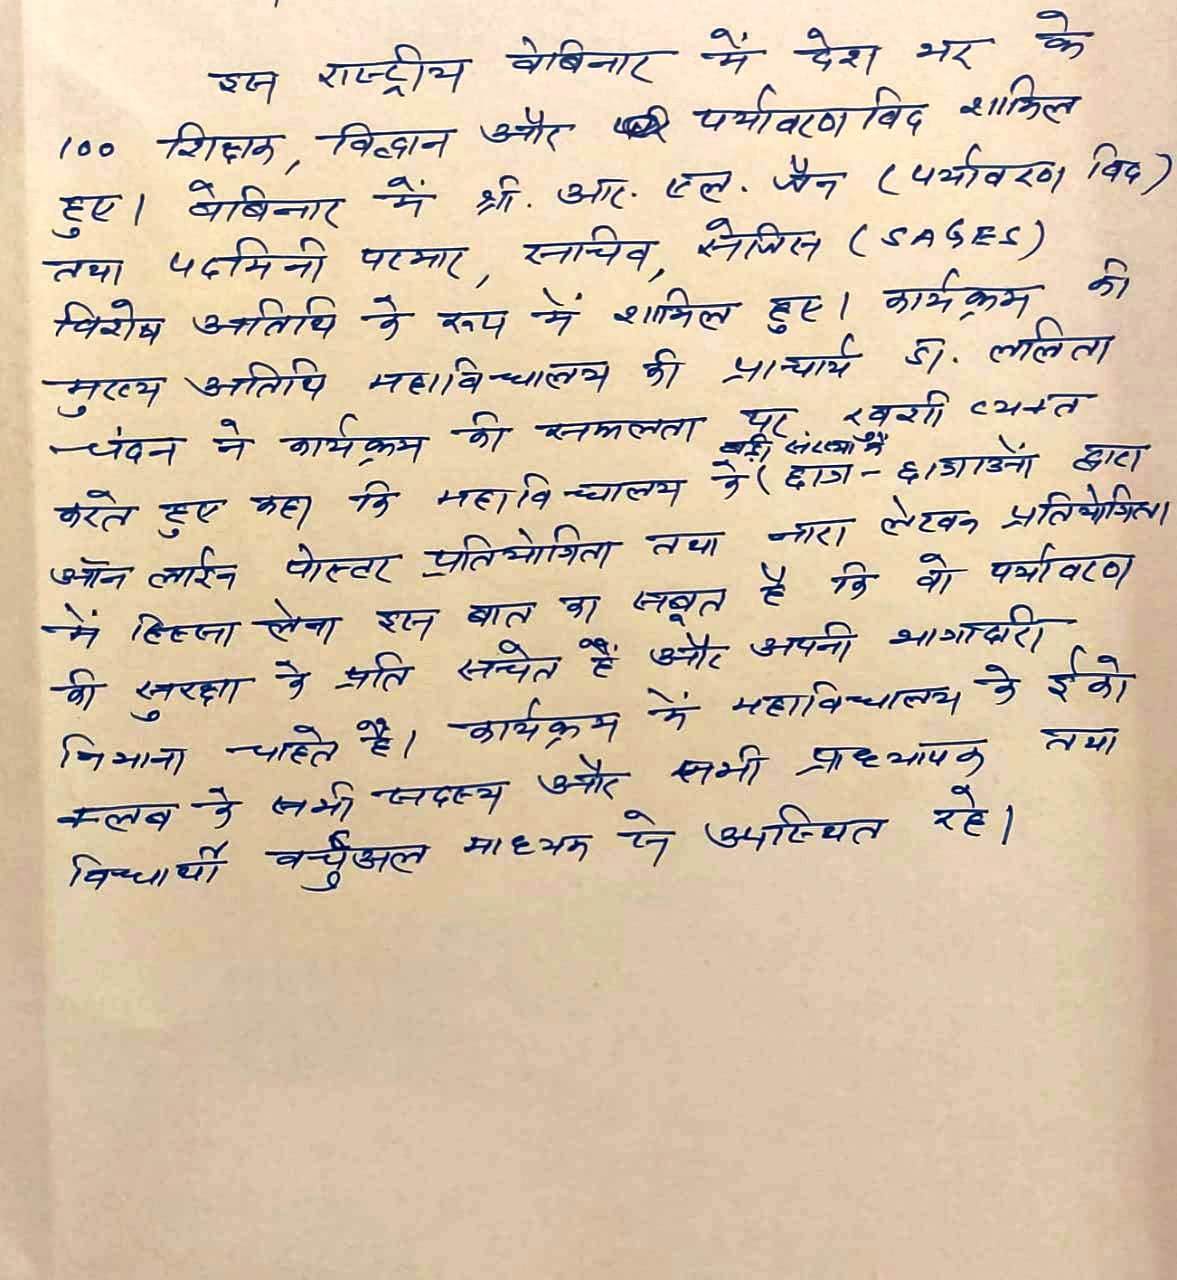 इस राष्ट्रीय वेबिनार में देश भर के
100 शिक्षक, विद्वान और पर्यावरण विद शामिल
हुए। वेबिनार में श्री. आर. एल. जैन (पर्यावरण विद)
तथा पदमिनी परमार, सचिव, सेजिस (SAGES)
विशेष अतिथि के रूप में शामिल हुए। कार्यक्रम की
मुख्य अतिथि महाविद्यालय की प्राचार्य डा. ललिता
चंदन ने कार्यक्रम की सफलता पर खुशी व्यक्त
करते हुए कहा कि महाविद्यालय के (बड़ी संख्या में छात्र - छात्राओं द्वारा
ऑन लाईन पोस्टर प्रतियोगिता तथा नारा लेखन प्रतियोगिता
में हिस्सा लेना इस बात का सबूत है कि वो पर्यावरण
की सुरक्षा के प्रति सचेत हैं और अपनी भागीदारी
निभाना चाहते है। कार्यक्रम में महाविद्यालय के ईको
क्लब के सभी सदस्य और सभी प्राध्यापक तथा
विद्यार्थी वर्चुअल माध्यम से उपस्थित रहे।